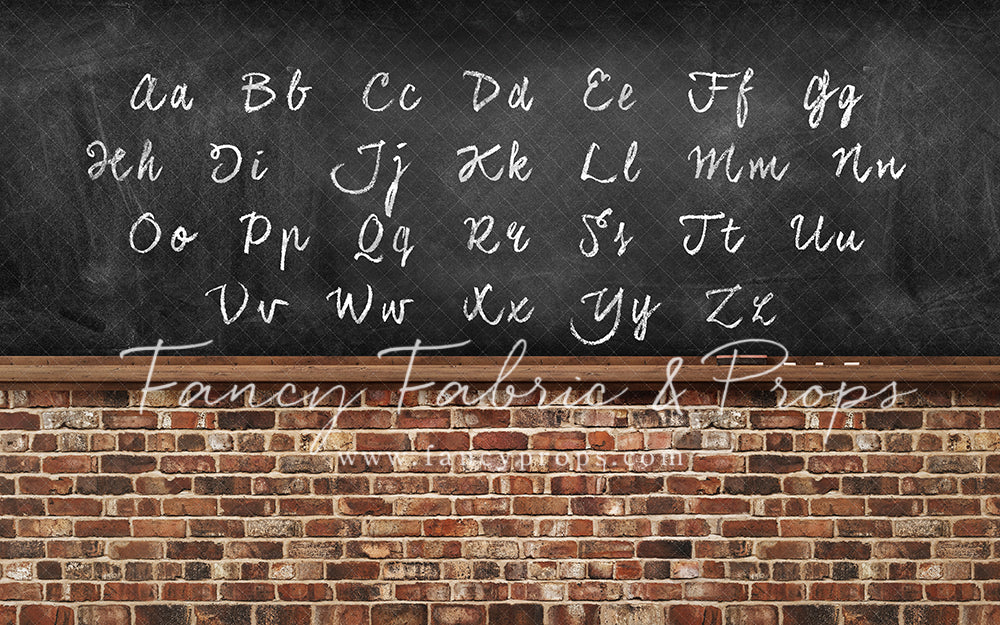 Aa Bb Cc Dd Ee Ff Gg
Hh Ii Jj Kk Ll Mm Nn
Oo Pp Qq Rr Ss Tt Uu
Vv Ww Xx Yy Zz
Fancy Fabric & Props
www.fancyprops.com